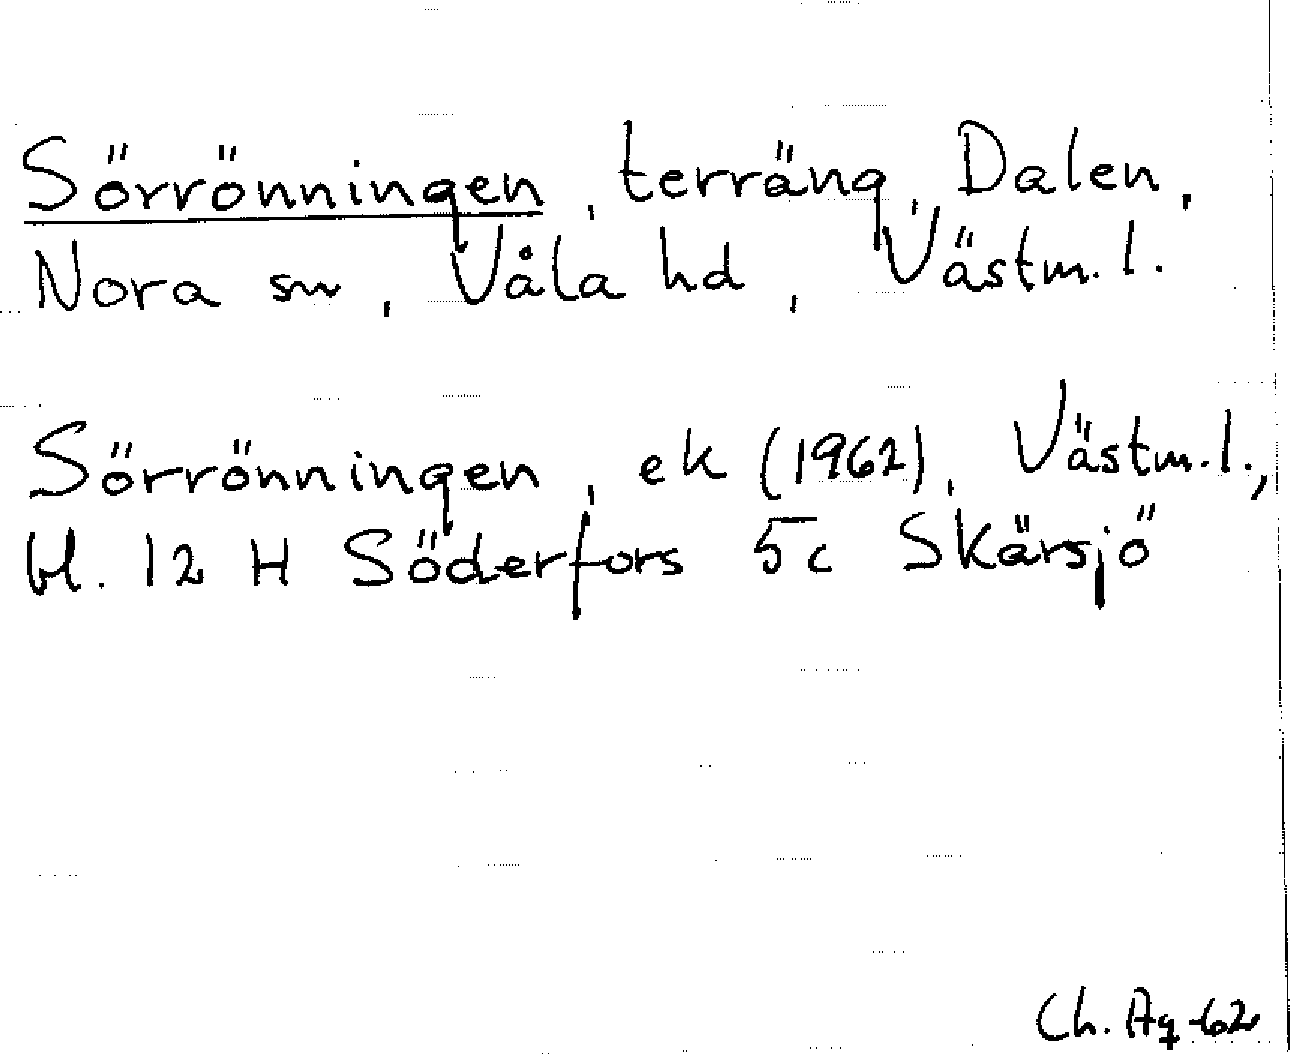 Sörrönningen, terräng, Dalen,
Nora sn, Våla hd, Västm. l.
Sörrönningen, ek (1962), Västm. l.,
bl. 12 H Söderfors 5c Skärsjö
Ch. Ag -62